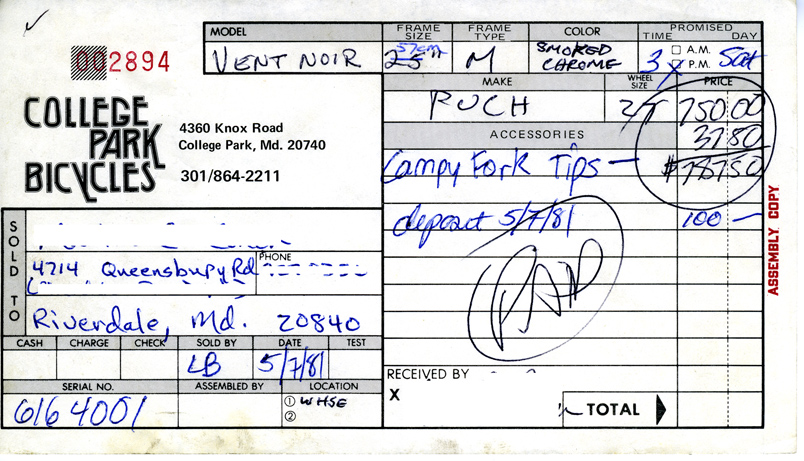 002894
COLLEGE PARK BICYCLES
4360 Knox Road
College Park, Md. 20740
301/864-2211
MODEL
VENT NOIR
FRAME SIZE
25"
57cm
FRAME TYPE
M
COLOR
SMOKED CHROME
PROMISED
TIME DAY
3 A.M. P.M. Sat
MAKE
PUCH
WHEEL SIZE
27
PRICE
750 00
ACCESSORIES
37 80
Campy Fork Tips — $787 50
deposit 5/7/81 100 —
PAID
ASSEMBLY COPY
SOLD TO
4714 Queensbury Rd
PHONE
Riverdale, Md. 20840
CASH CHARGE CHECK SOLD BY DATE TEST
LB 5/7/81
SERIAL NO. ASSEMBLED BY LOCATION
6164001
① WHSE
②
RECEIVED BY
X
TOTAL